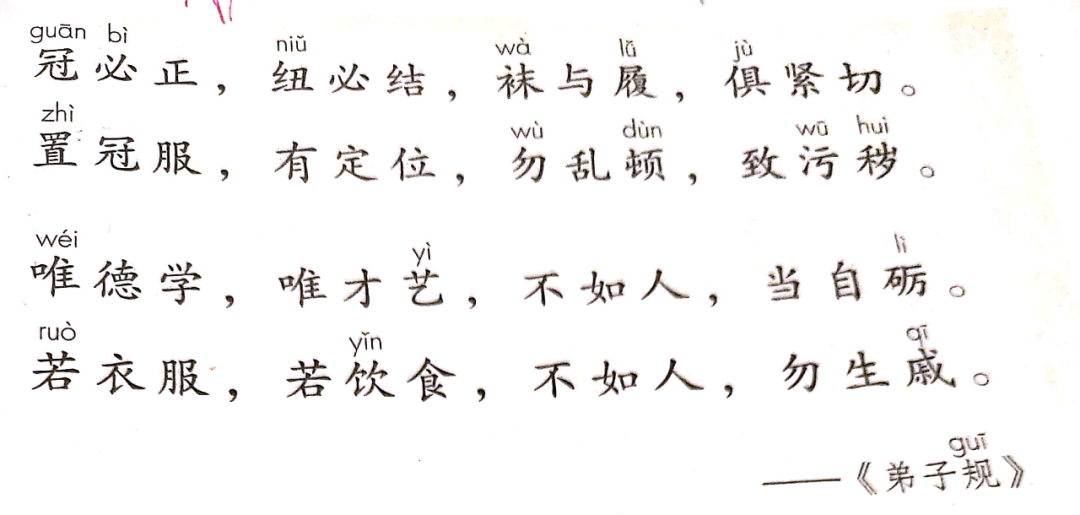 guān bì niǔ wà lǚ jù
冠必正，纽必结，袜与履，俱紧切。
zhì wù dùn wū huì
置冠服，有定位，勿乱顿，致污秽。
wéi yì lì
唯德学，唯才艺，不如人，当自砺。
ruò yǐn qī
若衣服，若饮食，不如人，勿生戚。
guī
——《弟子规》